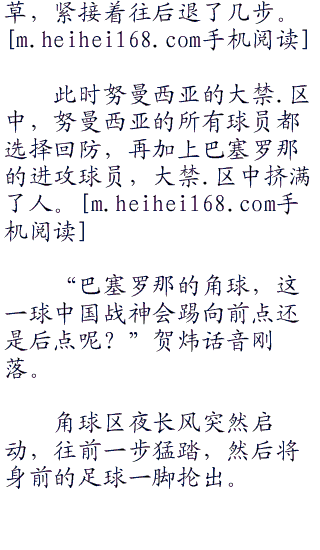 草，紧接着往后退了几步。
[m.heihei168.com手机阅读]
此时努曼西亚的大禁.区
中，努曼西亚的所有球员都
选择回防，再加上巴塞罗那
的进攻球员，大禁.区中挤满
了人。[m.heihei168.com手
机阅读]
“巴塞罗那的角球，这
一球中国战神会踢向前点还
是后点呢？”贺炜话音刚
落。
角球区夜长风突然启
动，往前一步猛踏，然后将
身前的足球一脚抡出。